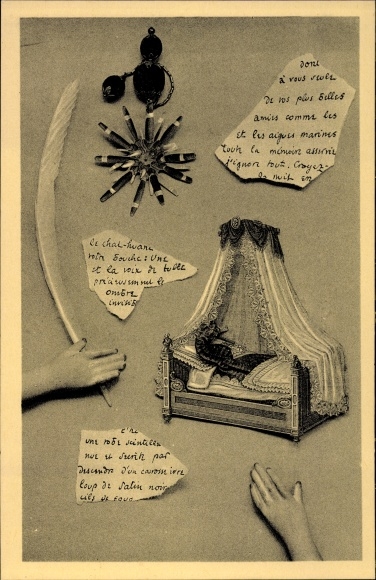 dont
à vous seule
de vos plus belles
amies comme les
et les aigues marines
toute la mémoire assortie
j'ignore tout. Croyez-
la nuit en
le chat-huant
votre bouche : Une
et la voix de tulle
précieusement le
ombre
invisib
une robe scintille
nue et secrète par
descendre d'un carrosse ivre
loup de satin noir
cils de